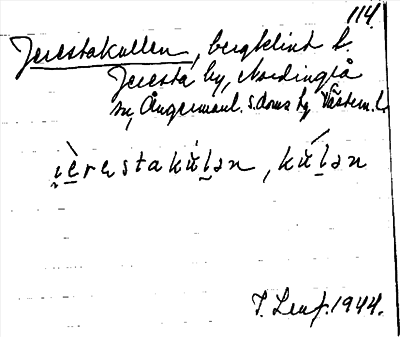 114.
Jerestakullen, bergklint h.
Jeresta by, Nordingrå
sn, Ångermanl. s. doms hg Västern. l.
i̯èrestakul̠ən, kúl̠ən
1944.